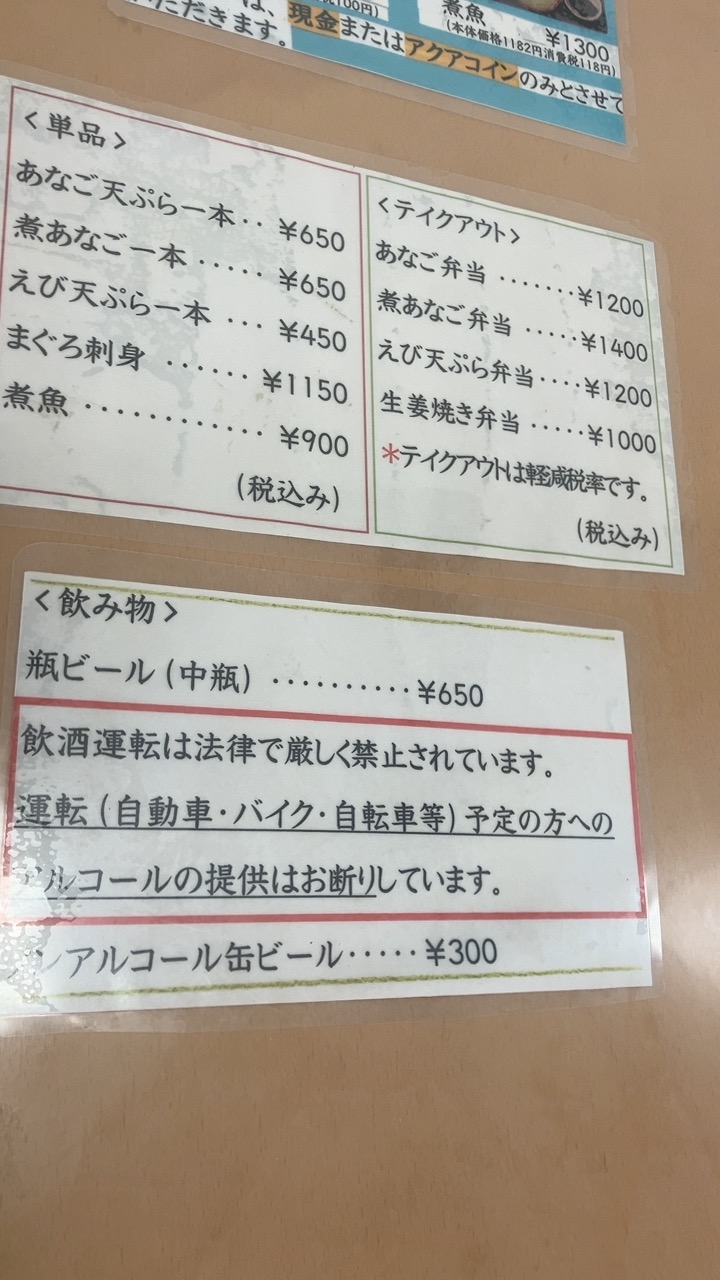 煮魚
¥1300
(本体価格1182円消費税118円)
税100円)
は、現金またはアクアコインのみとさせて
ただきます。
<単品>
あなご天ぷら一本‥ ¥650
煮あなご一本 ····· ¥650
えび天ぷら一本 ··· ¥450
まぐろ刺身 ······ ¥1150
煮魚 ············ ¥900
(税込み)
<テイクアウト>
あなご弁当 ·······¥1200
煮あなご弁当 ·····¥1400
えび天ぷら弁当····¥1200
生姜焼き弁当 ·····¥1000
*テイクアウトは軽減税率です。
(税込み)
<飲み物>
瓶ビール(中瓶) ··········¥650
飲酒運転は法律で厳しく禁止されています。
運転(自動車・バイク・自転車等)予定の方への
アルコールの提供はお断りしています。
ノンアルコール缶ビール·····¥300